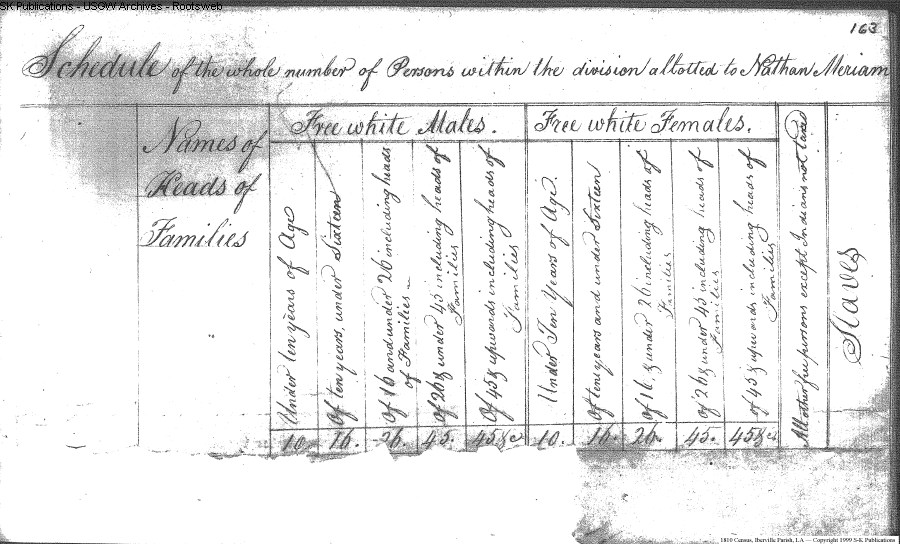 SK Publications - USGW Archives - Rootsweb
163
Schedule of the whole number of Persons within the division allotted to Nathan Meriam
Names of
Heads of
Families
Free white Males.
Under ten years of Age
Of ten years, under Sixteen
Of 16 and under 26 including heads
of Families
Of 26 & under 45 including heads of
Families
Of 45 & upwards including heads of
Families
Free white Females.
Under Ten Years of Age.
Of ten years and under Sixteen
Of 16, & under 26 including heads of
Families
of 26 & under 45 including heads of
Families
of 45 & upwards including heads of
Families
All other free persons except Indians not taxed
Slaves
10 16. 26. 45. 45&c 10. 16. 26. 45. 45&c
1810 Census, Iberville Parish, LA — Copyright 1999 S-K Publications